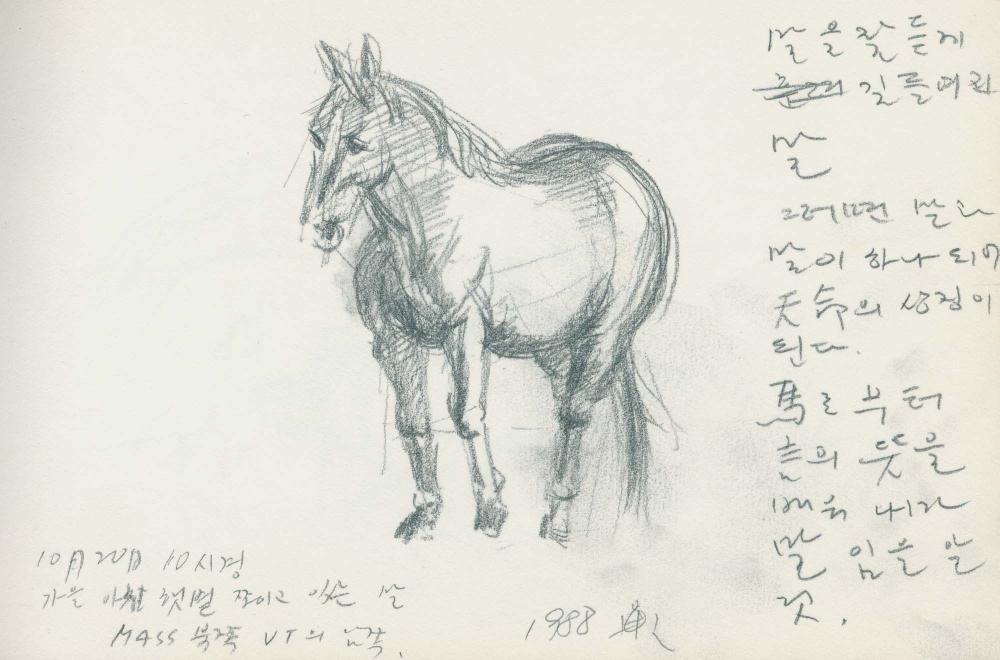 말을 잘 듣게
길들여라
말
그러면 말과
말이 하나 되어
天命의 상징이
된다.
馬로부터
言의 뜻을
배워 내라
말 임을 알
것.
10月 20日 10시경
가을 아침 햇볕 쪼이고 있는 말
MASS 북쪽 VT의 남쪽.
1988